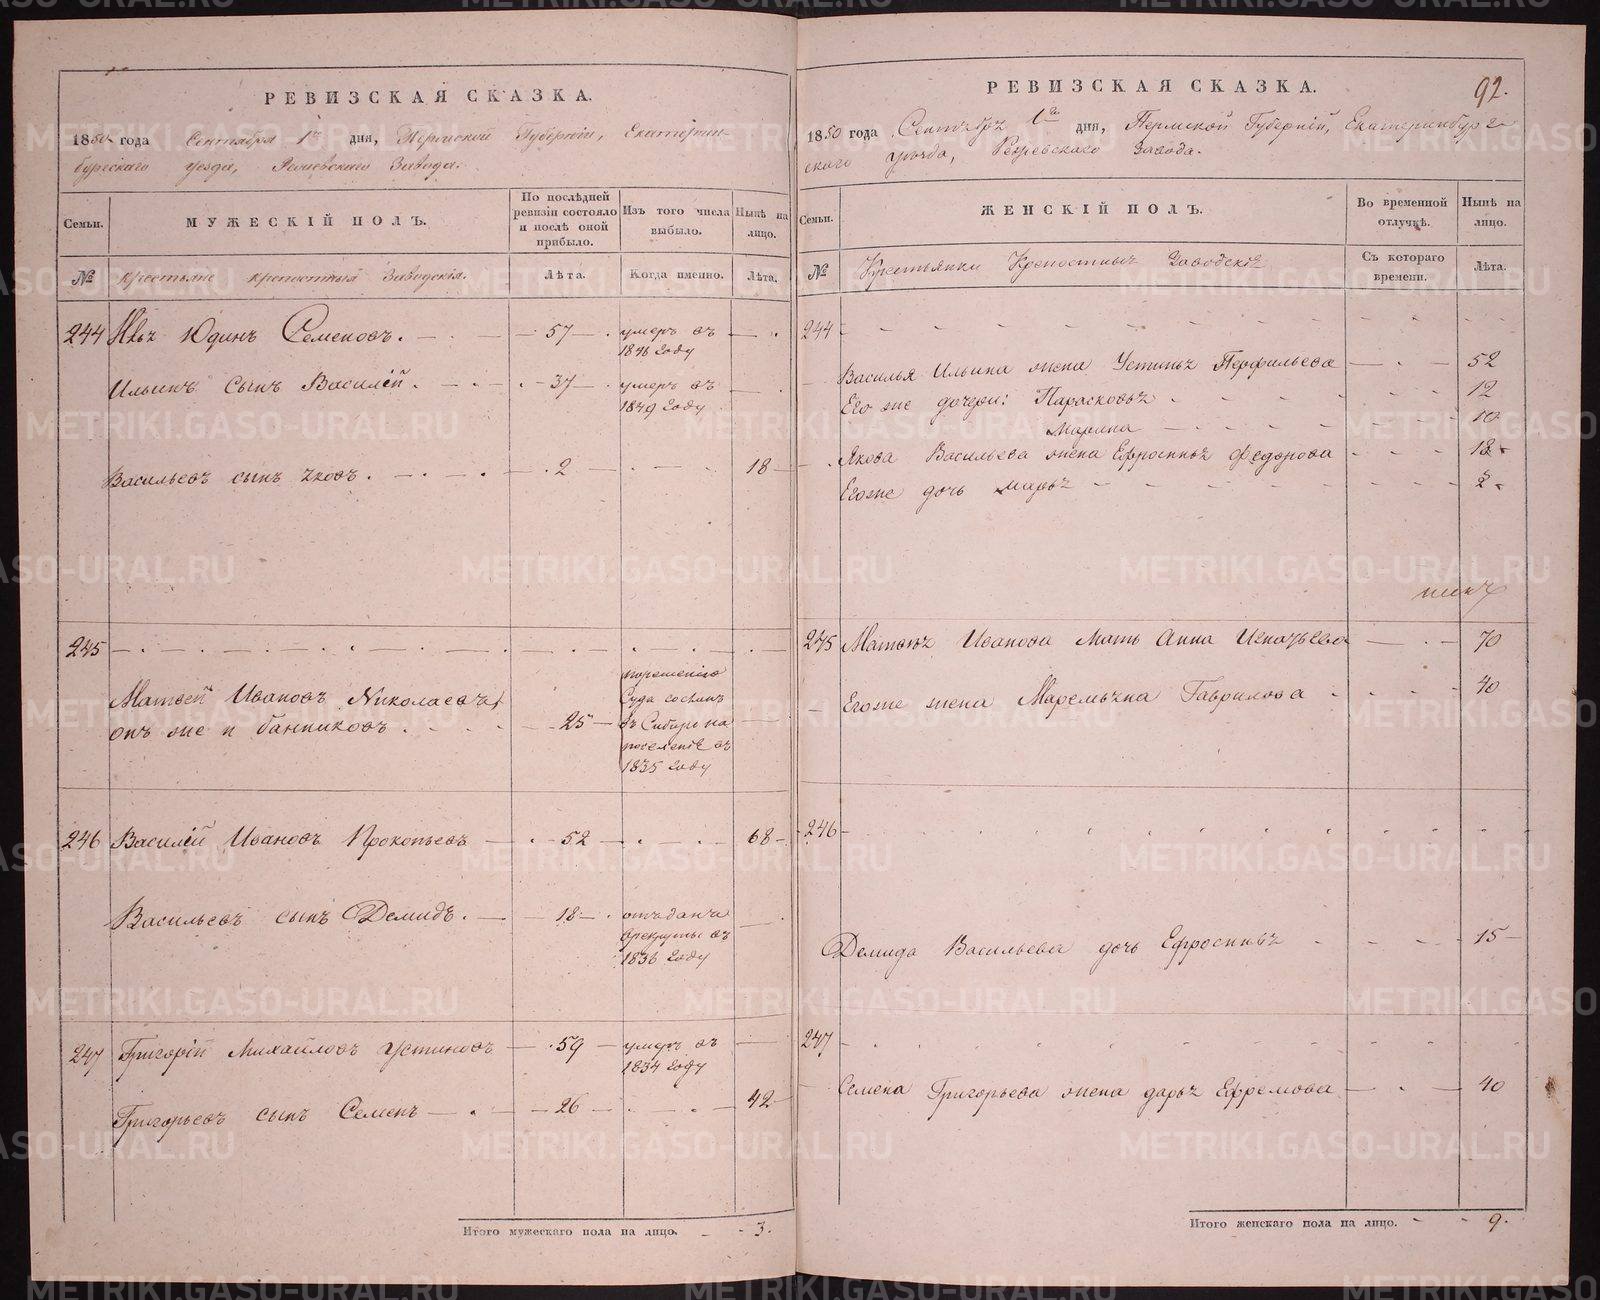 РЕВИЗСКАЯ СКАЗКА.
1850 года Сентября 1го дня, Пермской Губерніи, Екатерин-
бургскаго уезда, Режевскаго Завода.
Семьи.
МУЖЕСКІЙ ПОЛЪ.
По послѣдней ревизіи состояло и послѣ оной прибыло.
Изъ того числа выбыло.
Нынѣ на лицо.
№ Крестьяне крепостныя Заводскія.
Лѣта.
Когда именно.
Лѣта.
244 Юдинъ Семеновъ. 57 умеръ въ 1846 году
Ильинъ сынъ Василій. 37 умеръ въ 1849 году
Васильевъ сынъ Яковъ. 2 18
245
Матвей Ивановъ Николаевъ
онъ же и банниковъ. 25 порешению Суда сосланъ въ Сибирь на поселеніе въ 1835 году
246 Василій Ивановъ Прокопьевъ 52 68
Васильевъ сынъ Демидъ. 18 отъданъ врекруты въ 1836 году
247 Григорій Михайловъ Устиновъ 59 умеръ въ 1834 году
Григорьевъ сынъ Семенъ 26 42
Итого мужескаго пола на лицо. 3.
РЕВИЗСКАЯ СКАЗКА. 92.
1850 года Сентября 1го дня, Пермской Губерніи, Екатеринбург-
скаго уезда, Режевскаго Завода.
Семьи.
ЖЕНСКІЙ ПОЛЪ.
Во временной отлучкѣ.
Нынѣ на лицо.
№ Крестьянки Крепостныя Заводскія
Съ котораго времени.
Лѣта.
244
Василья Ильина жена Устинья Перфильева 52
Его же дочери: Парасковья 12
Марина 10
Якова Васильева жена Ефросинья Федорова 18
Егоже дочь Марья 2
245 Матвея Иванова мать Анна Игнатьева 70
Егоже жена Маремьяна Гаврилова 40
246
Демида Васильева дочь Ефросинья 15
247
Семена Григорьева жена Дарья Ефремова 40
Итого женскаго пола на лицо. 9.
METRIKI.GASO-URAL.RU